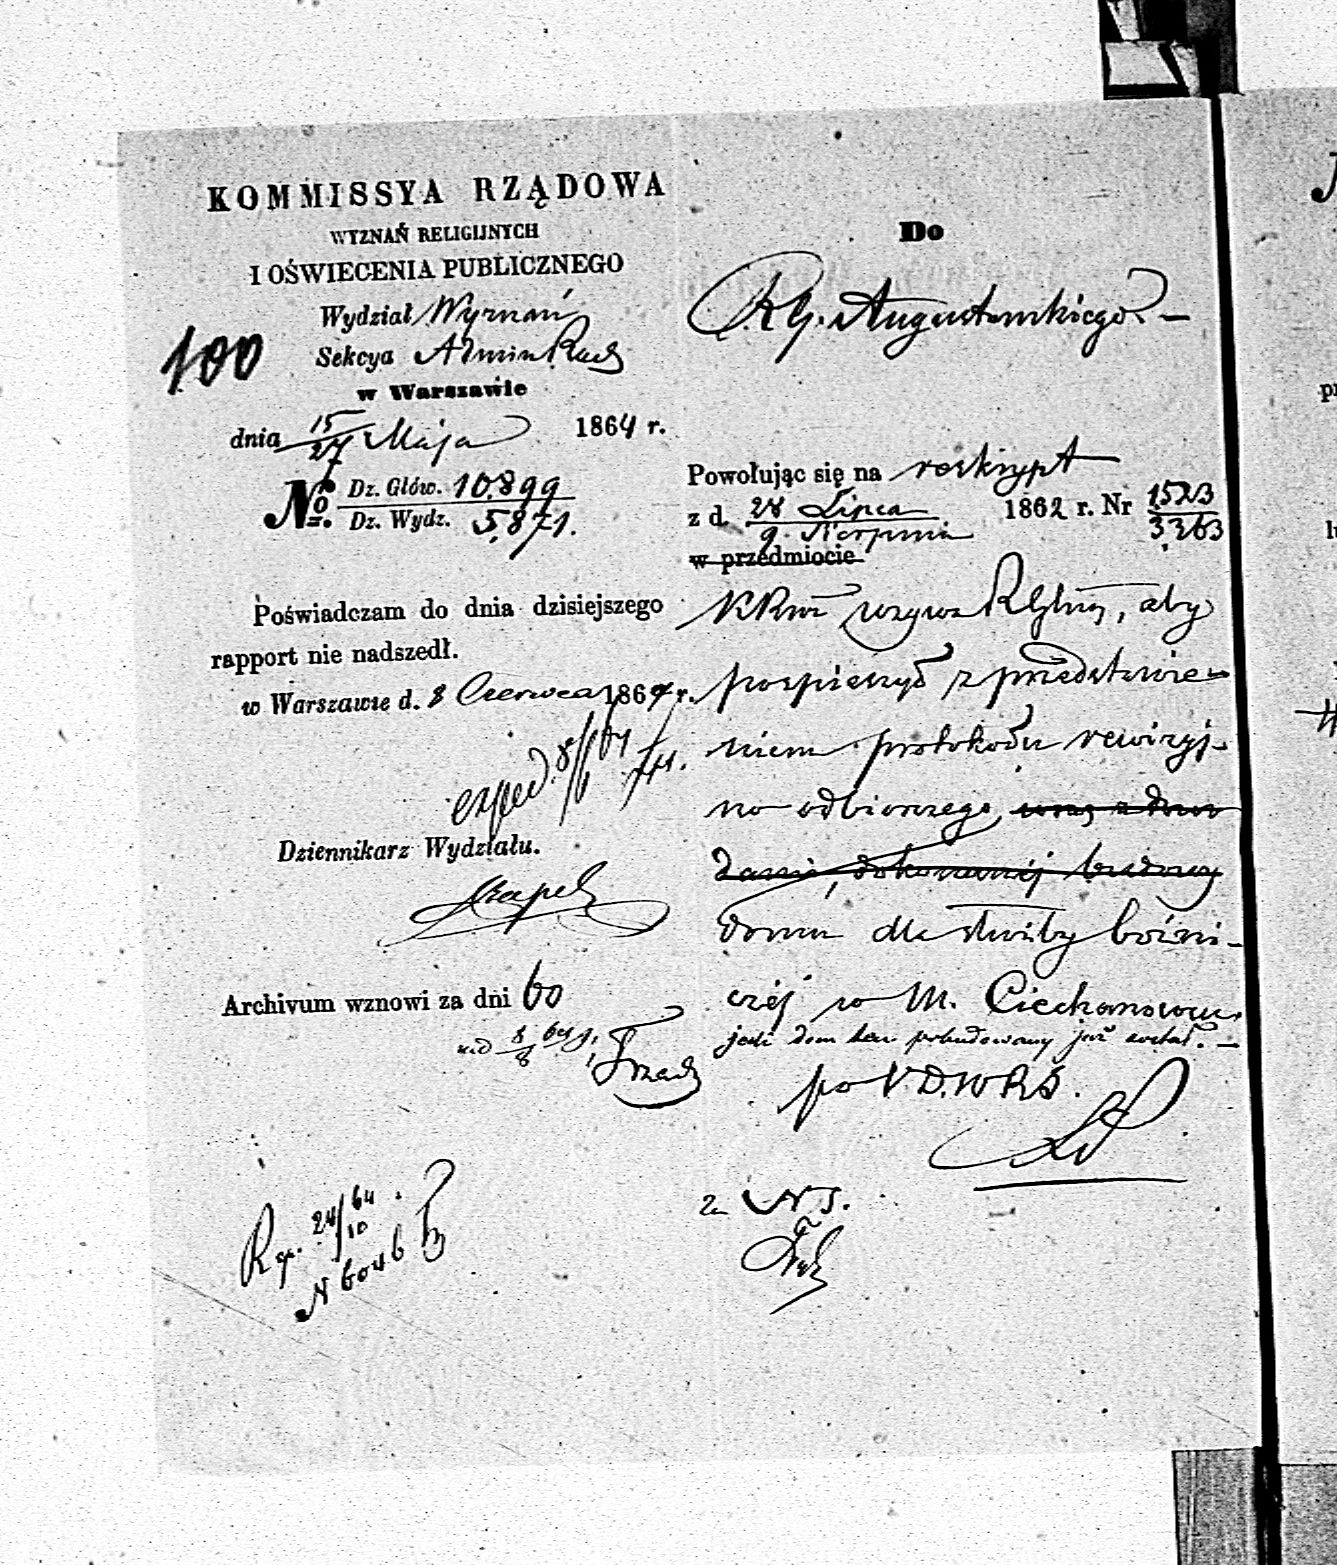 KOMMISSYA RZĄDOWA
WYZNAŃ RELIGIJNYCH
I OŚWIECENIA PUBLICZNEGO
Wydział Wyznań
Sekcya Admin Rach
100
w Warszawie
dnia 15/27 Maja 1864 r.
No. Dz. Głów. 10,899
Dz. Wydz. 5,871.
Poświadczam do dnia dzisiejszego
rapport nie nadszedł.
w Warszawie d. 8 Czerwca 1864 r.
exped. 8/6 64
Dziennikarz Wydziału.
Archivum wznowi za dni 60
Rp. 24/10 64.
N 6046
Do
R. G. Augustowskiego. —
Powołując się na reskrypt
z d. 28 Lipca / 9 Sierpnia 1862 r. Nr 1523/3363
w przedmiocie
wzywa aby
pospieszył z przedstawie-
niem protokołu rewizyj-
no odbiorczego, wraz z dowo
dami, dokonanéj budowy
domu dla służby bóżni-
czéj w M. Ciechanowcu,
jeśli dom ten pobudowany już został. —
po V D.W R S.
za N S.